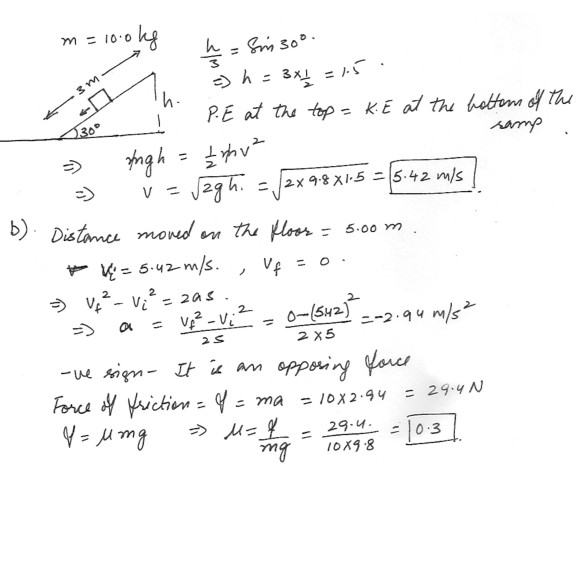 m = 10.0 kg
h/3 = Sin 30°.
3 m
⇒ h = 3×1/2 = 1.5
h.
30°
P.E at the top = K.E at the bottom of the ramp.
⇒ mgh = 1/2 mv²
⇒ v = √2gh. = √2×9.8×1.5 = 5.42 m/s.
b). Distance moved on the floor = 5.00 m.
Vi = 5.42 m/s. , Vf = 0.
⇒ Vf² - Vi² = 2as.
⇒ a = (Vf² - Vi²)/2s = (0-(542)²)/(2×5) = -2.94 m/s²
-ve sign - It is an opposing force
Force of friction = f = ma = 10×2.94 = 29.4 N
f = μmg ⇒ μ = f/mg = 29.4./(10×9.8) = 0.3.